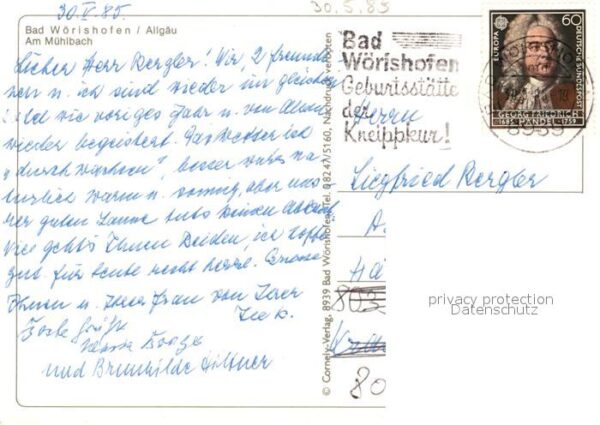 30.V.85.
30.5.85
Bad Wörishofen / Allgäu
Am Mühlbach
Lieber Herr Rergler! Wir, 2 Freundin-
nen u. ich sind wieder im gleichen
wie voriges Jahr u. von Allem
wieder begeistert. Das Wetter ist
"durchwachsen", besser wäre na-
türlich warm u. sonnig, aber uns
rer guten Laune tuts keinen Abbruch
Wie geht's Ihnen Beiden, ich hoffe
gut. Für heute recht herzl. Grüsse
Ihnen u. Ihrer Frau von Ihrer
Grüße
und Brunhilde
© Cornely-Verlag, 8939 Bad Wörishofen, Tel. 0 82 47/51 60, Nachdruck verboten
Bad
Wörishofen
Geburtsstätte
der
Kneippkur!
8939
EUROPA
60
DEUTSCHE BUNDESPOST
GEORG FRIEDRICH
1685 HÄNDEL 1759
Herrn
Siegfried Rergler
803
80
privacy protection
Datenschutz